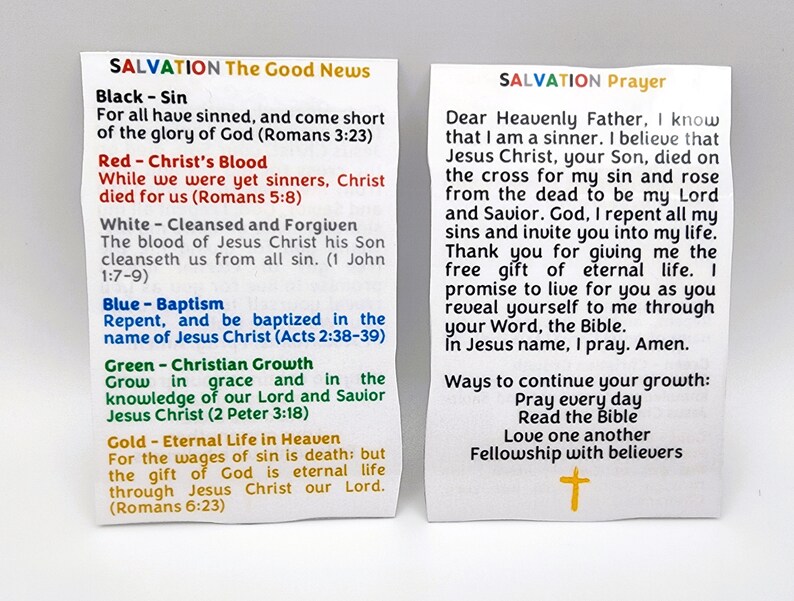 SALVATION The Good News
Black - Sin
For all have sinned, and come short
of the glory of God (Romans 3:23)
Red - Christ's Blood
While we were yet sinners, Christ
died for us (Romans 5:8)
White - Cleansed and Forgiven
The blood of Jesus Christ his Son
cleanseth us from all sin. (1 John
1:7-9)
Blue - Baptism
Repent, and be baptized in the
name of Jesus Christ (Acts 2:38-39)
Green - Christian Growth
Grow in grace and in the
knowledge of our Lord and Savior
Jesus Christ (2 Peter 3:18)
Gold - Eternal Life in Heaven
For the wages of sin is death; but
the gift of God is eternal life
through Jesus Christ our Lord.
(Romans 6:23)
SALVATION Prayer
Dear Heavenly Father, I know
that I am a sinner. I believe that
Jesus Christ, your Son, died on
the cross for my sin and rose
from the dead to be my Lord
and Savior. God, I repent all my
sins and invite you into my life.
Thank you for giving me the
free gift of eternal life. I
promise to live for you as you
reveal yourself to me through
your Word, the Bible.
In Jesus name, I pray. Amen.
Ways to continue your growth:
Pray every day
Read the Bible
Love one another
Fellowship with believers